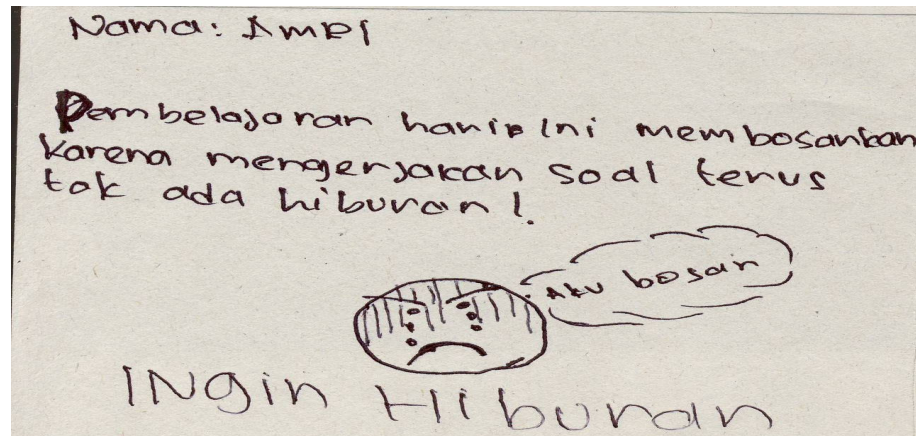 Nama: Ampi
Pembelajaran hari ini membosankan
karena mengerjakan soal terus
tak ada hiburan!
Aku bosan
INgin Hiburan